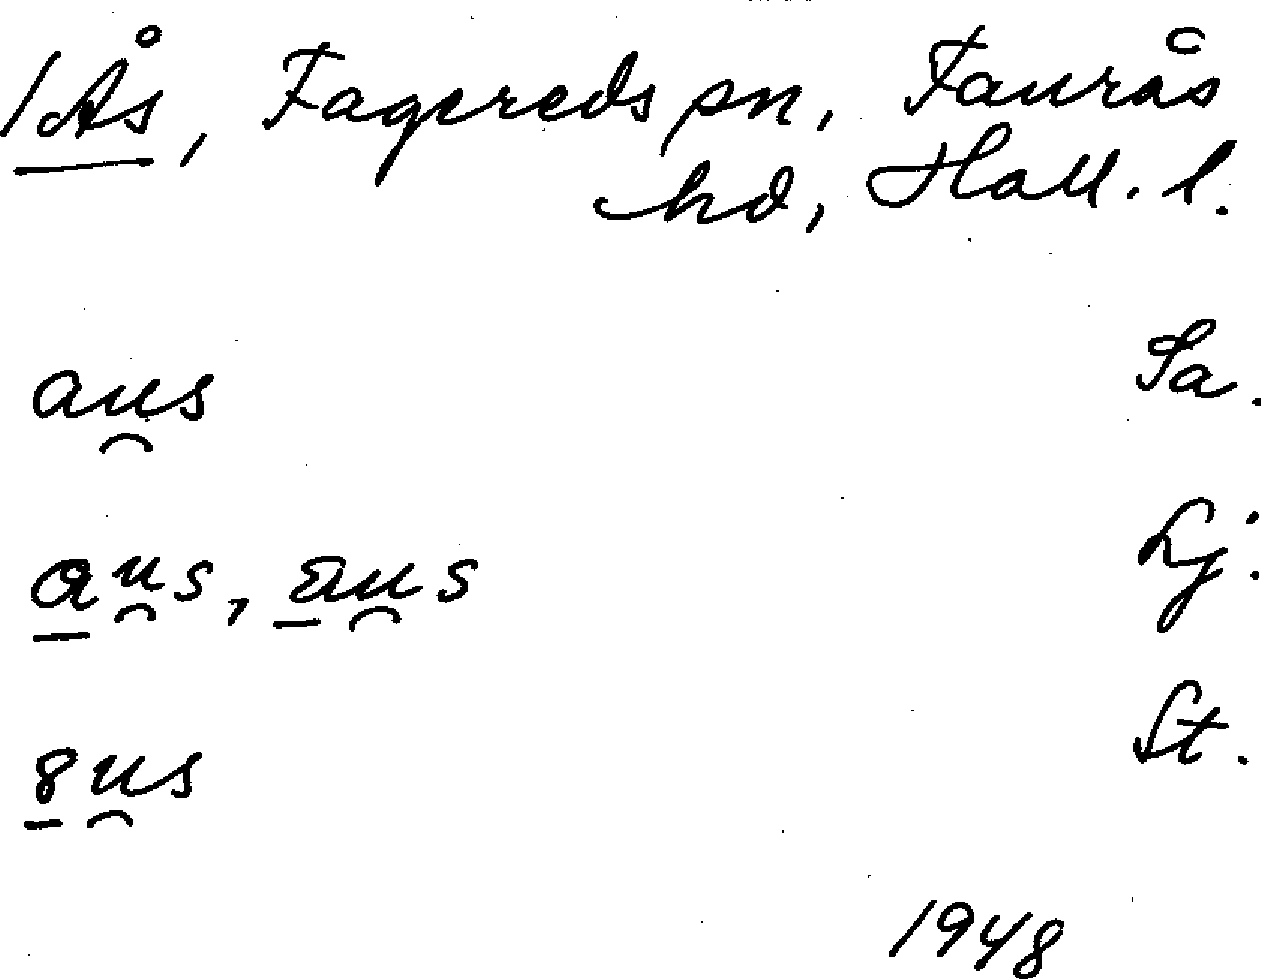 1 Ås, Fagereds sn, Faurås
hd, Hall. l.
aus Sa.
aus, aus Lj.
8us St.
1948